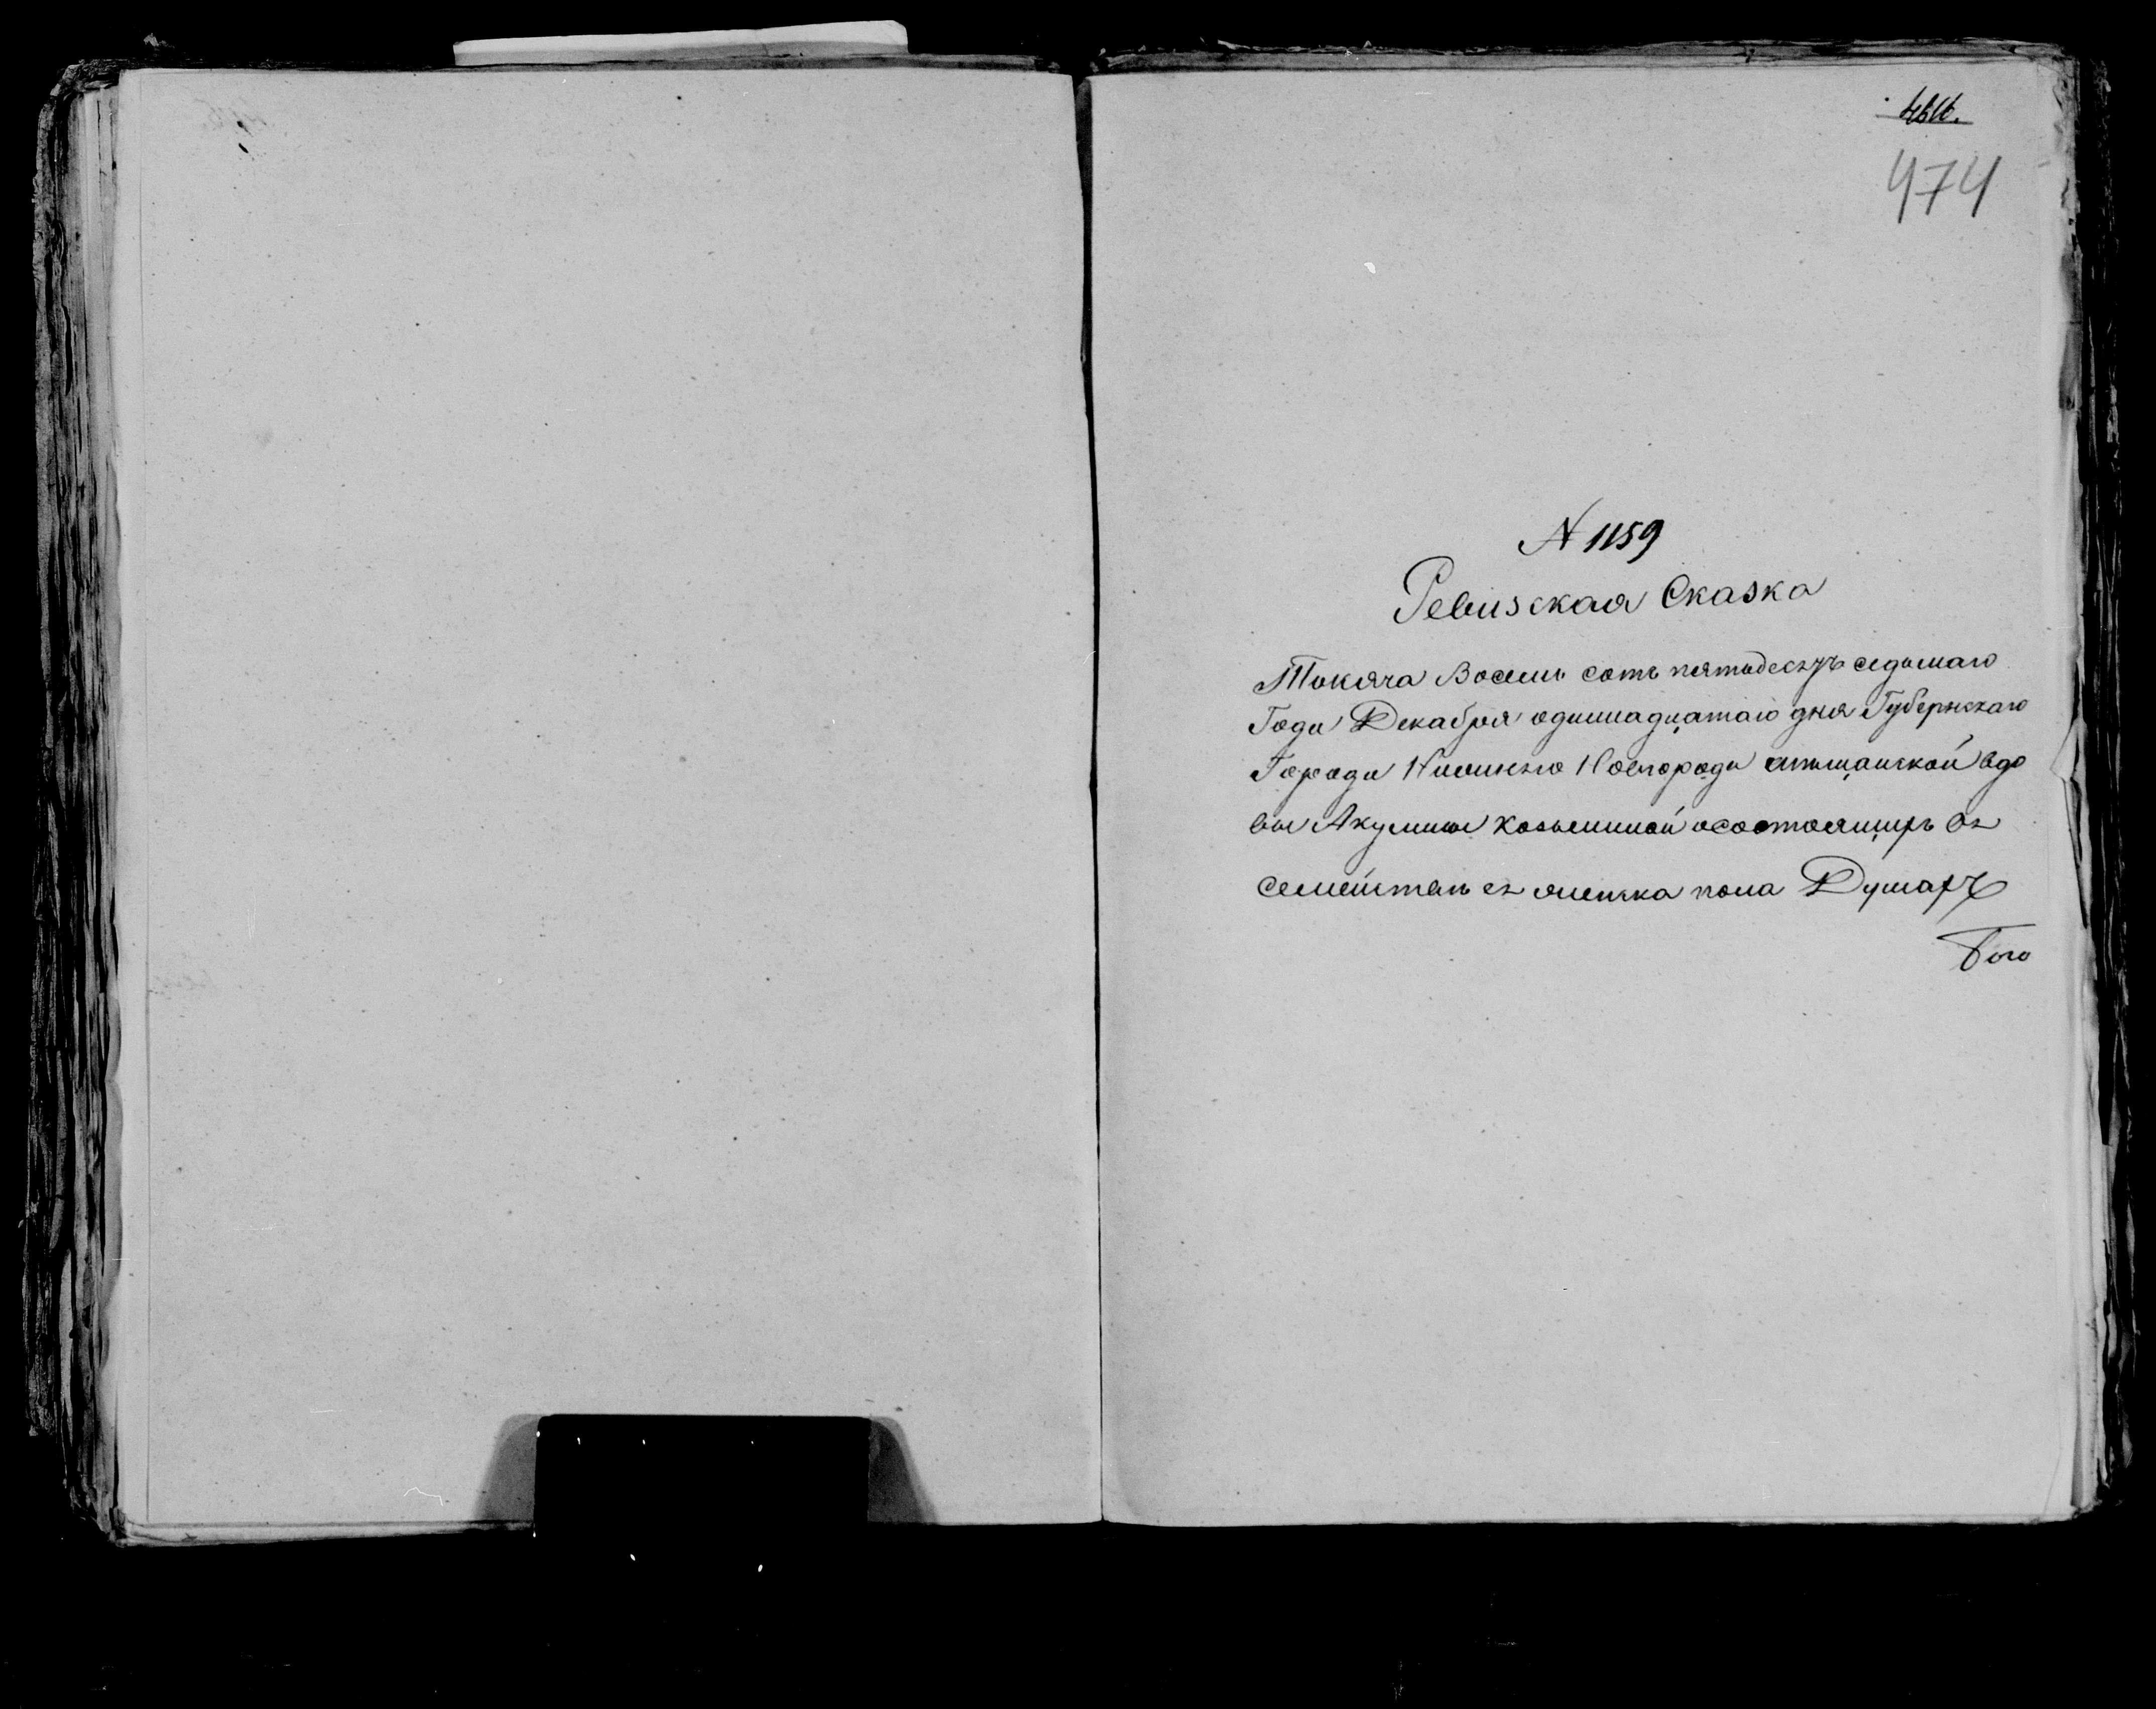 474
N 1159
Ревизская Сказка
Тысяча Восемь сотъ пятьдесятъ седьмаго
Года Декабря одиннадцатаго дня Губернскаго
Города Нижнего Новгорода мещанской вдо
вы Акулины Козьминой о состоящихъ въ
семействѣ ея мужска пола Душахъ